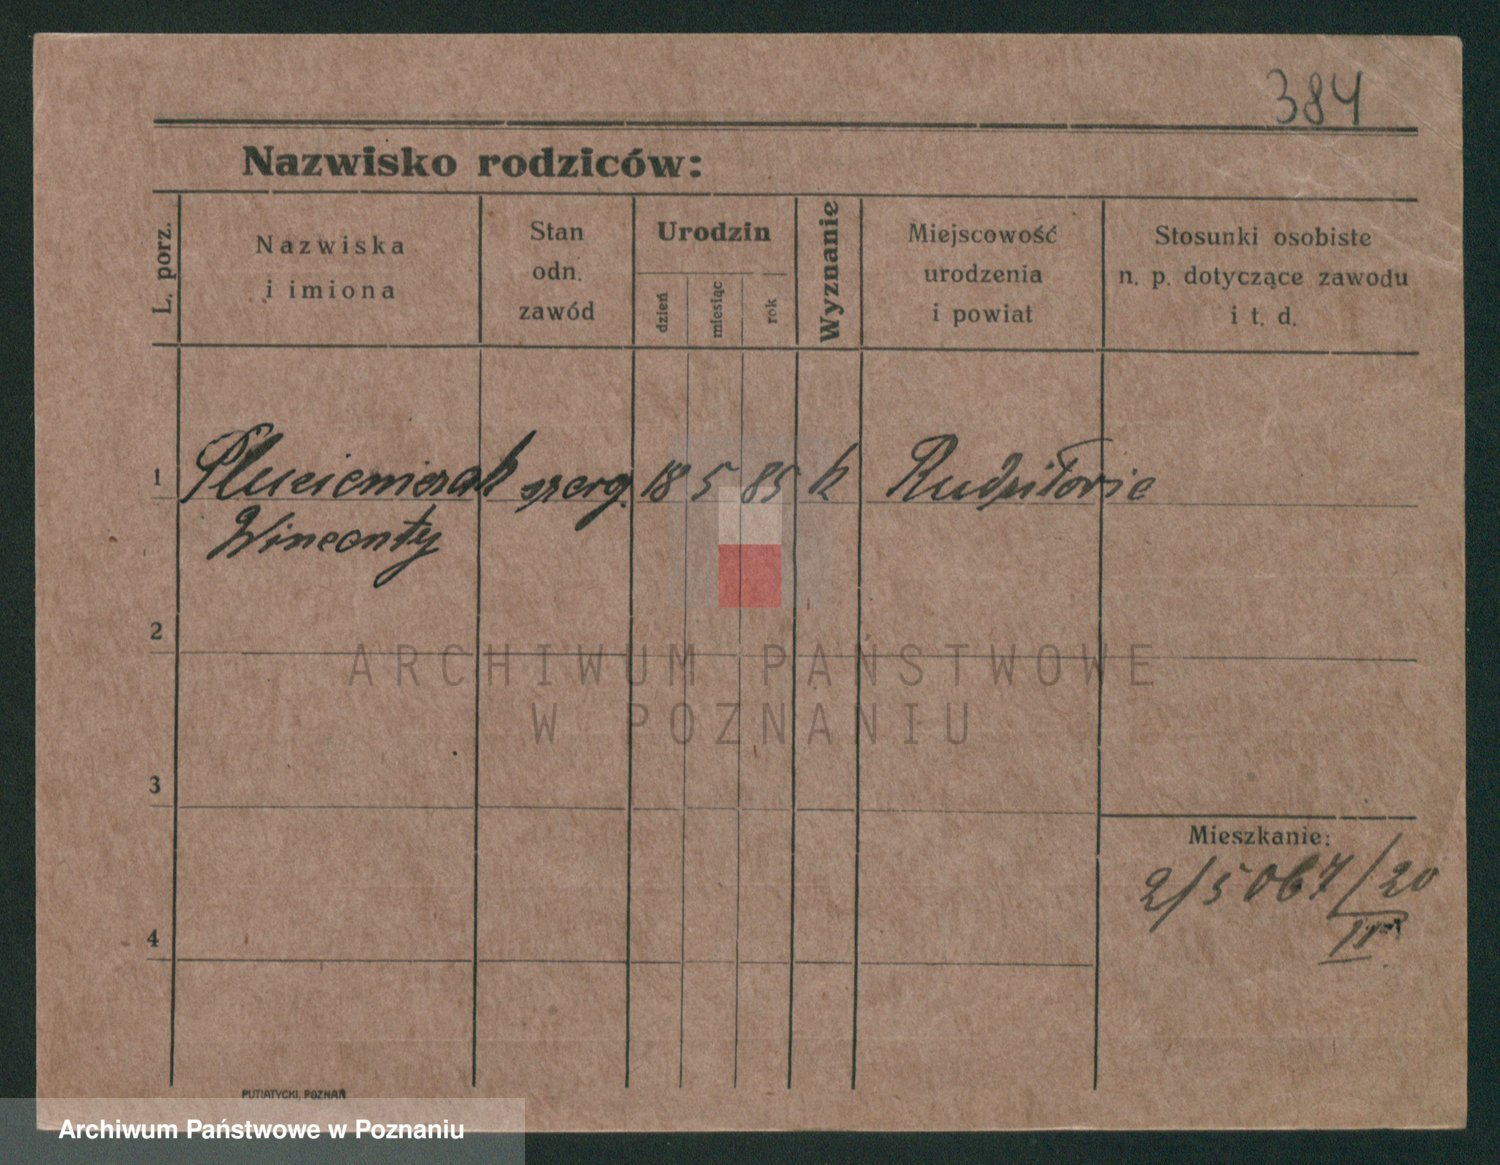 384
Nazwisko rodziców:
L. porz.
Nazwiska
i imiona
Stan
odn.
zawód
Urodzin
dzień
miesiąc
rok
Wyznanie
Miejscowość
urodzenia
i powiat
Stosunki osobiste
n. p. dotyczące zawodu
i t. d.
1 szereg. 18 5 85 k
Wincenty
2
ARCHIWUM PAŃSTWOWE
W POZNANIU
3
Mieszkanie:
2/5067/20
II
4
PUTIATYCKI, POZNAŃ
Archiwum Państwowe w Poznaniu